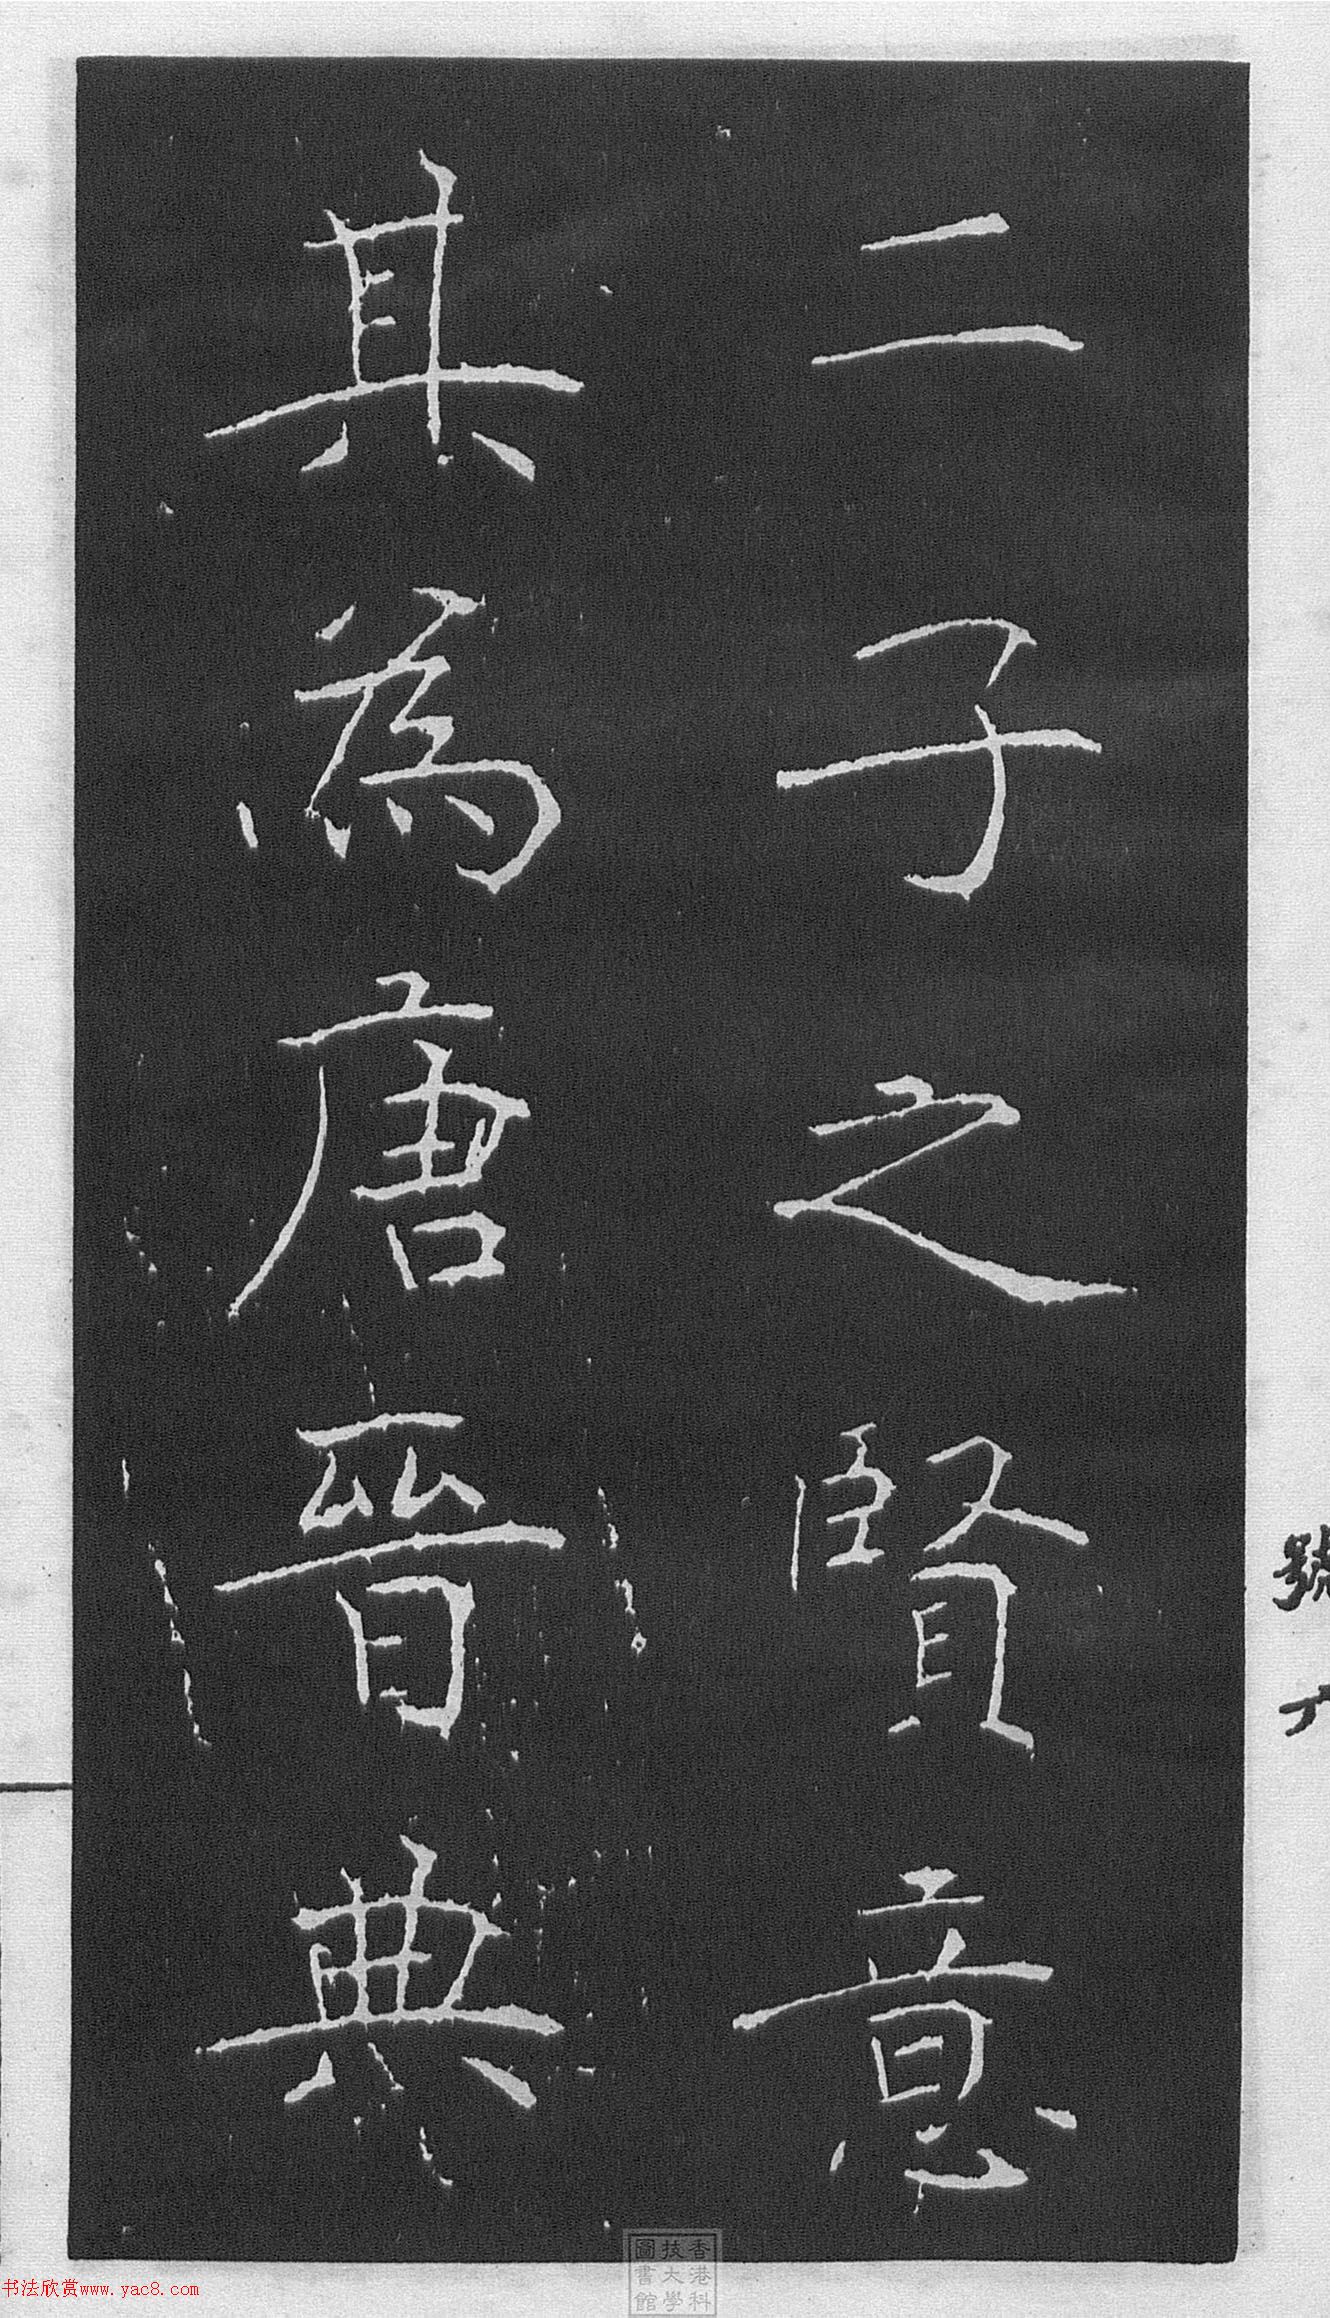 二子之賢意
其為唐晉典
號
香港科
技大學
圖書館
书法欣赏www.yac8.com